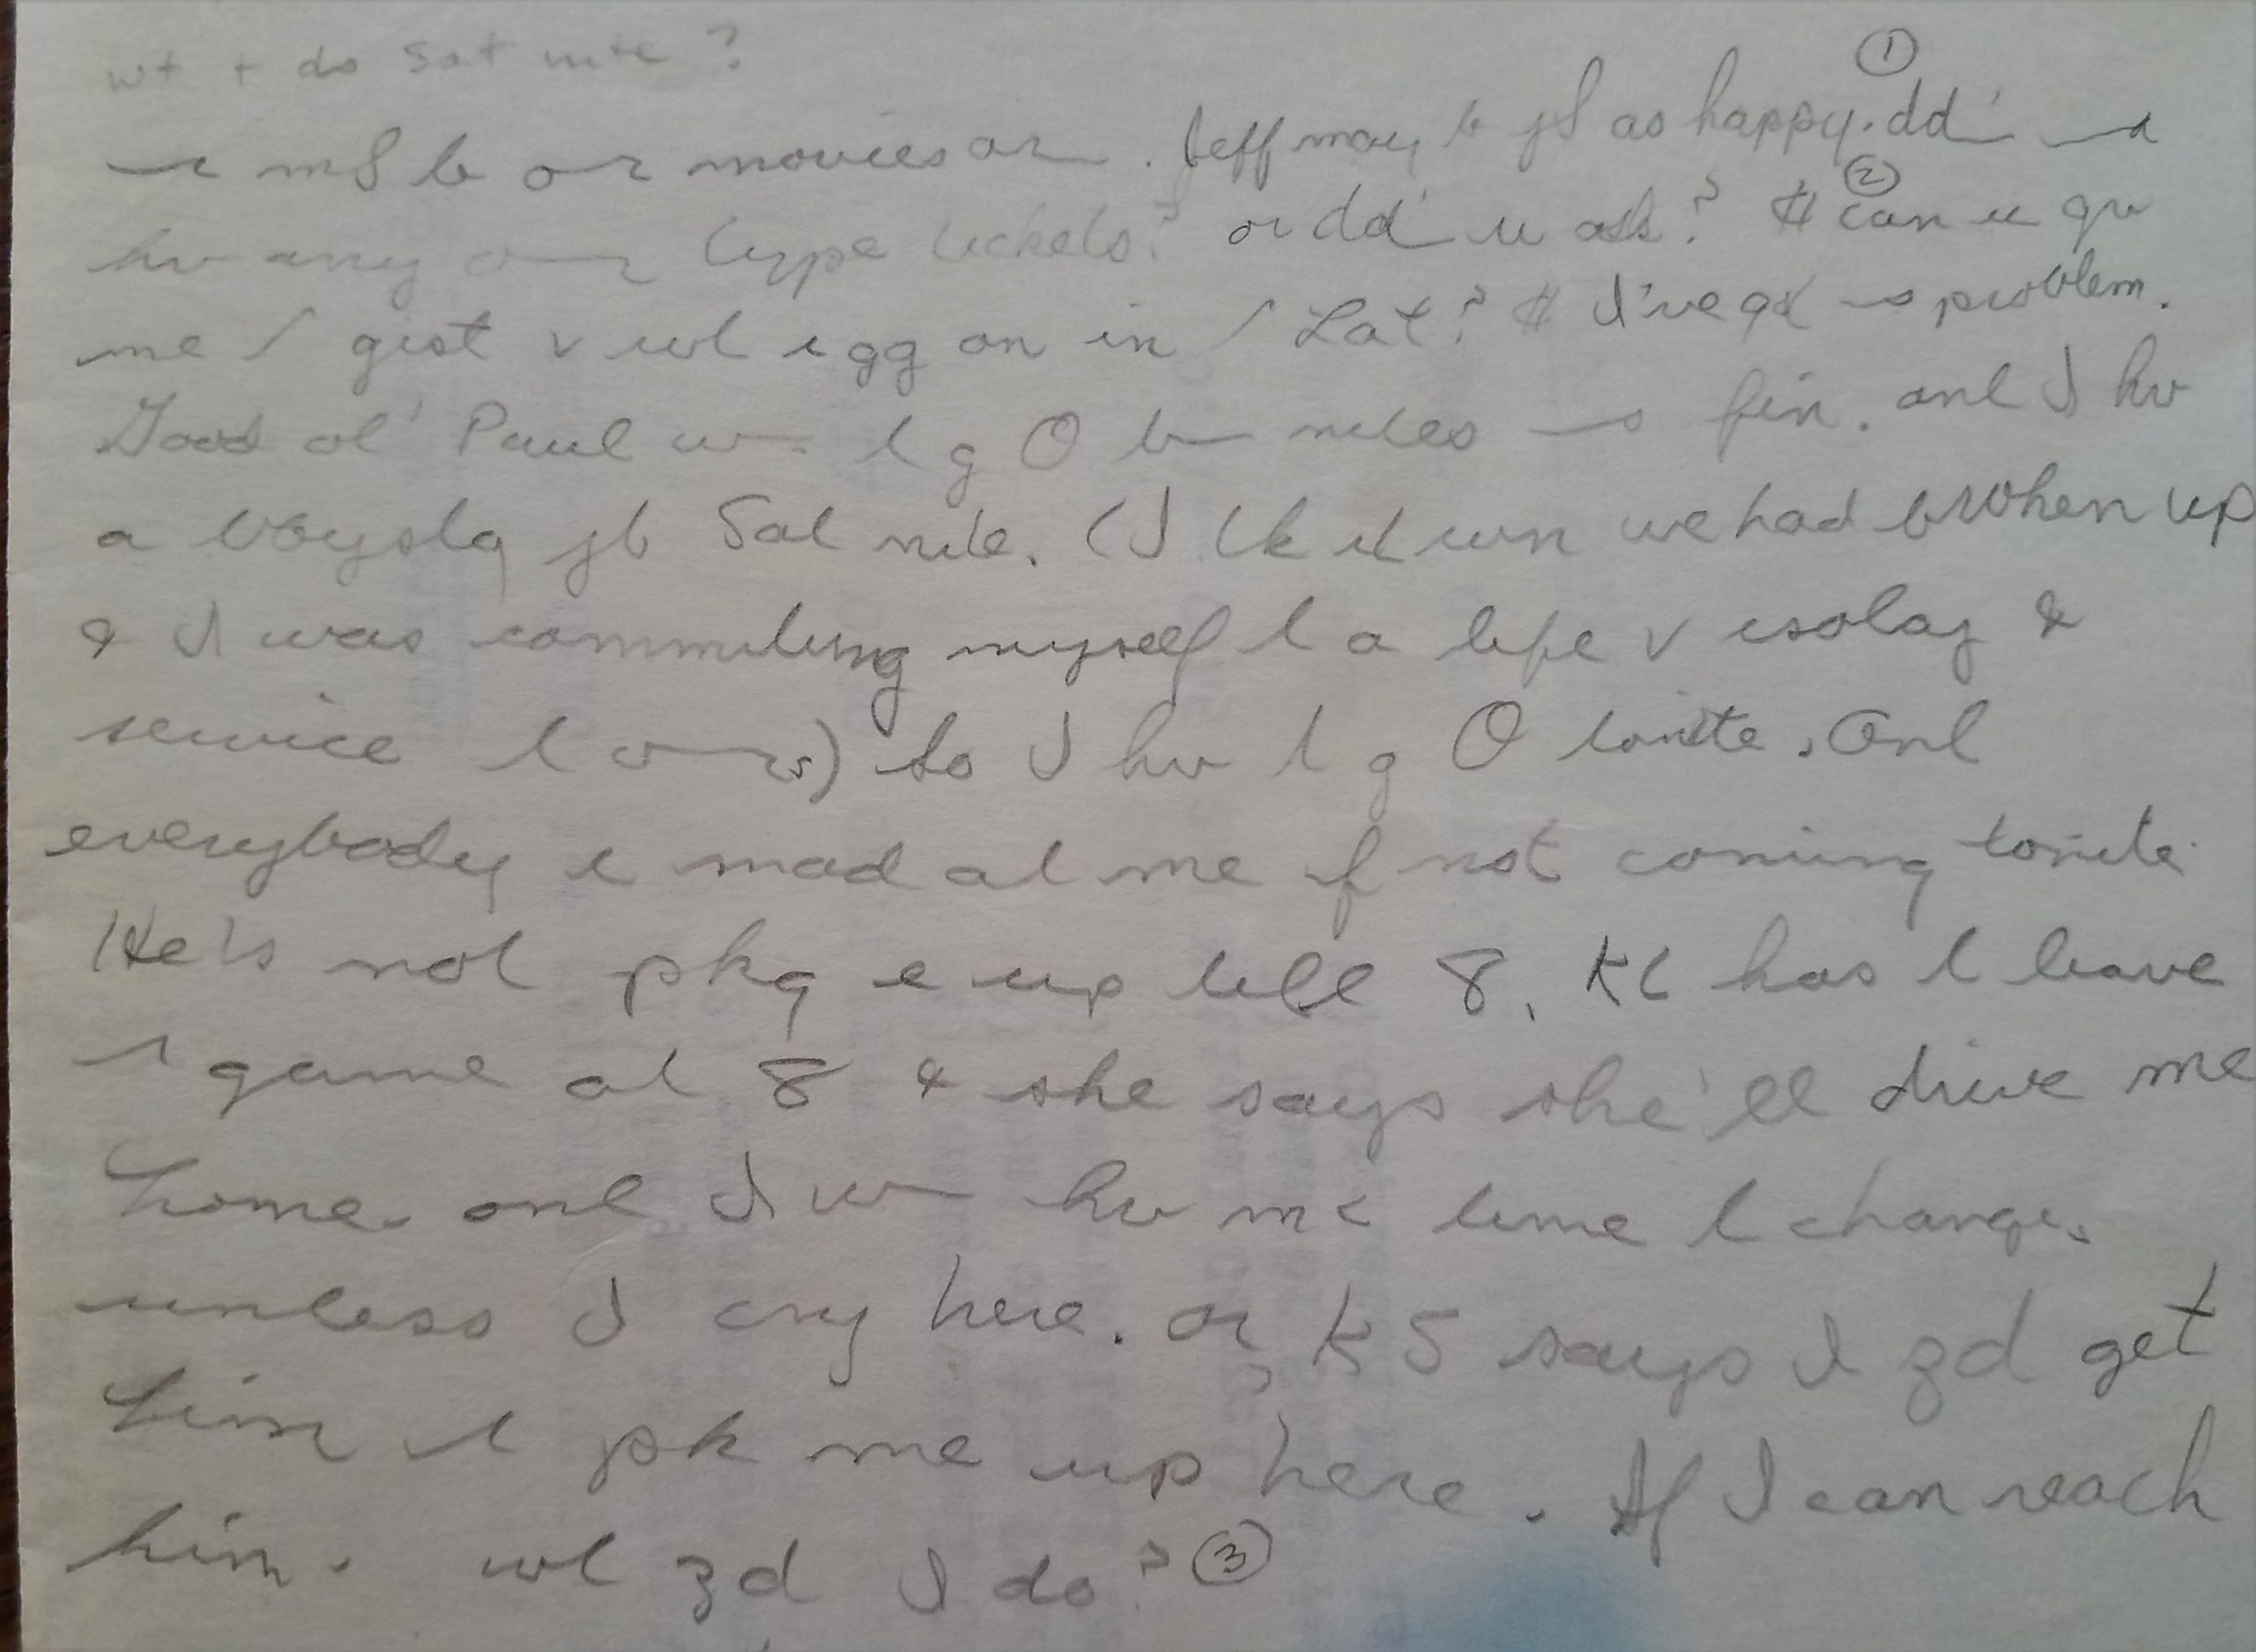 wt t do Sat nite?
mS b or movies or . Jeff may b jS as happy. ① dd'
hv any or type tickets? or dd' u ask? # ② can u gv
me / gist v wl i gg on in / Lat? # I've gt a problem.
Good ol' Paul w l g O b nites fin. onl I hv
a bbystg jb Sat nite. (I tk it wn we had broken up
& I was commiting myself l a life v isolaj &
service l ors) so I hv l g O tonite. Onl
everybody i mad at me if not coming tonite.
He's not pkg e up till 8. KC has l leave
/ game at 8 & she says she'll drive me
home. onl I w hv mc time l change.
unless I cry here. or, KS says I zd get
him l pk me up here. If I can reach
him. wl zd I do? ③